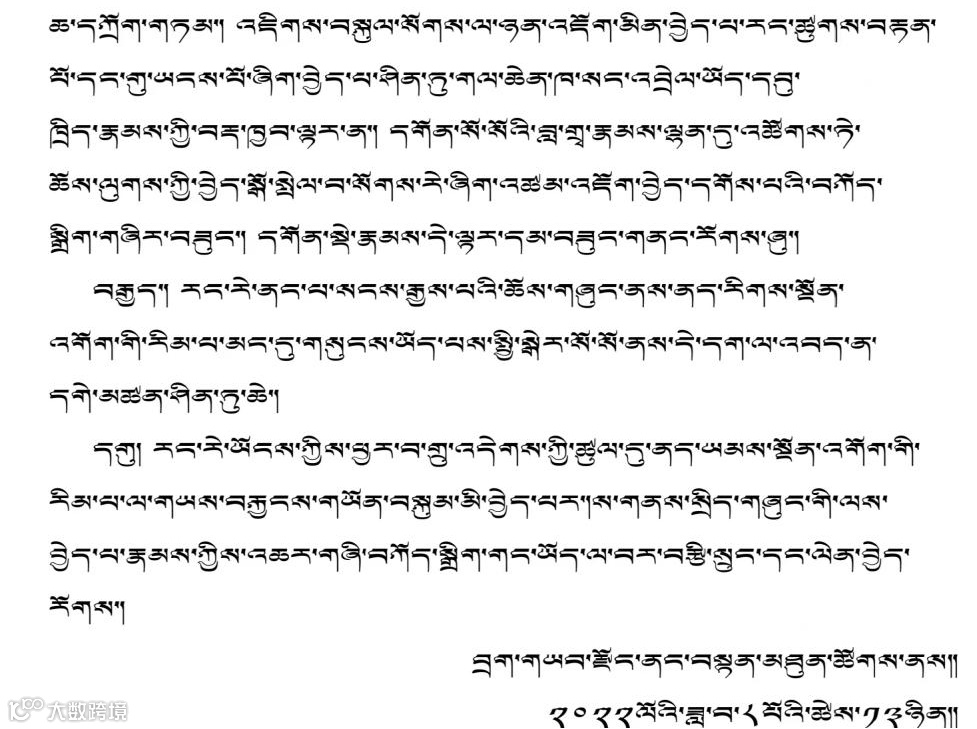 ཆ་དཀྲོག་གཏམ། འཇིགས་བསྐུལ་སོགས་ལ་ཉན་འཇོག་མིན་བྱེད་པ་རང་ཚུགས་བརྟན་
པོ་དང་གུ་ཡངས་པོ་ཞིག་བྱེད་པ་ཤིན་ཏུ་གལ་ཆེན་ཁ་སང་འབྲེལ་ཡོད་དབུ་
ཁྲིད་རྣམས་ཀྱི་བརྡ་ཁྱབ་ལྟར་ན། དགོན་སོ་སོའི་བླ་གྲྭ་རྣམས་ལྷན་དུ་འཚོགས་ཏེ་
ཆོས་ལུགས་ཀྱི་བྱེད་སྒོ་སྤེལ་བ་སོགས་རེ་ཞིག་འཚམ་འཇོག་བྱེད་དགོས་པའི་བཀོད་
སྒྲིག་གཞིར་བཟུང། དགོན་སྡེ་རྣམས་དེ་ལྟར་དམ་བཟུང་གནང་རོགས་ཞུ།
བརྒྱད། རང་རེ་ནང་པ་སངས་རྒྱས་པའི་ཆོས་གཞུང་ནས་ནད་རིགས་སྔོན་
འགོག་གི་རིམ་པ་མང་དུ་གསུངས་ཡོད་པས་སྤྱི་སྒེར་སོ་སོ་ནས་དེ་དག་ལ་འབད་ན་
དགེ་མཚན་ཤིན་ཏུ་ཆེ།
དགུ། རང་རེ་ཡོངས་ཀྱིས་ཕྱར་བ་གྲུ་འདེགས་ཀྱི་ཚུལ་དུ་ནད་ཡམས་སྔོན་འགོག་གི་
རིམ་པ་ལ་གཡས་བརྐྱངས་གཡོན་བསྐུམ་མི་བྱེད་པར།ས་གནས་སྲིད་གཞུང་གི་ལས་
བྱེད་པ་རྣམས་ཀྱིས་འཆར་གཞི་བཀོད་སྒྲིག་གང་ཡོད་ལ་བར་བརྩི་སྲུང་དང་ལེན་བྱེད་
རོགས།
བྲག་གཡབ་རྫོང་ནང་བསྟན་མཐུན་ཚོགས་ནས༎
༢༠༢༢ལོའི་ཟླ་བ་༨པོའི་ཚེས་༡༣ཉིན༎
大数跨境